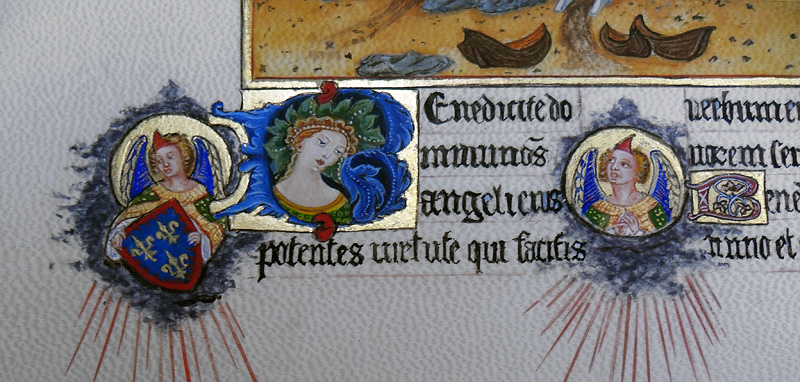 Benedicite do
minum
angeli eius
potentes virtute qui facitis
verbum
vocem ser
Bened
mino et